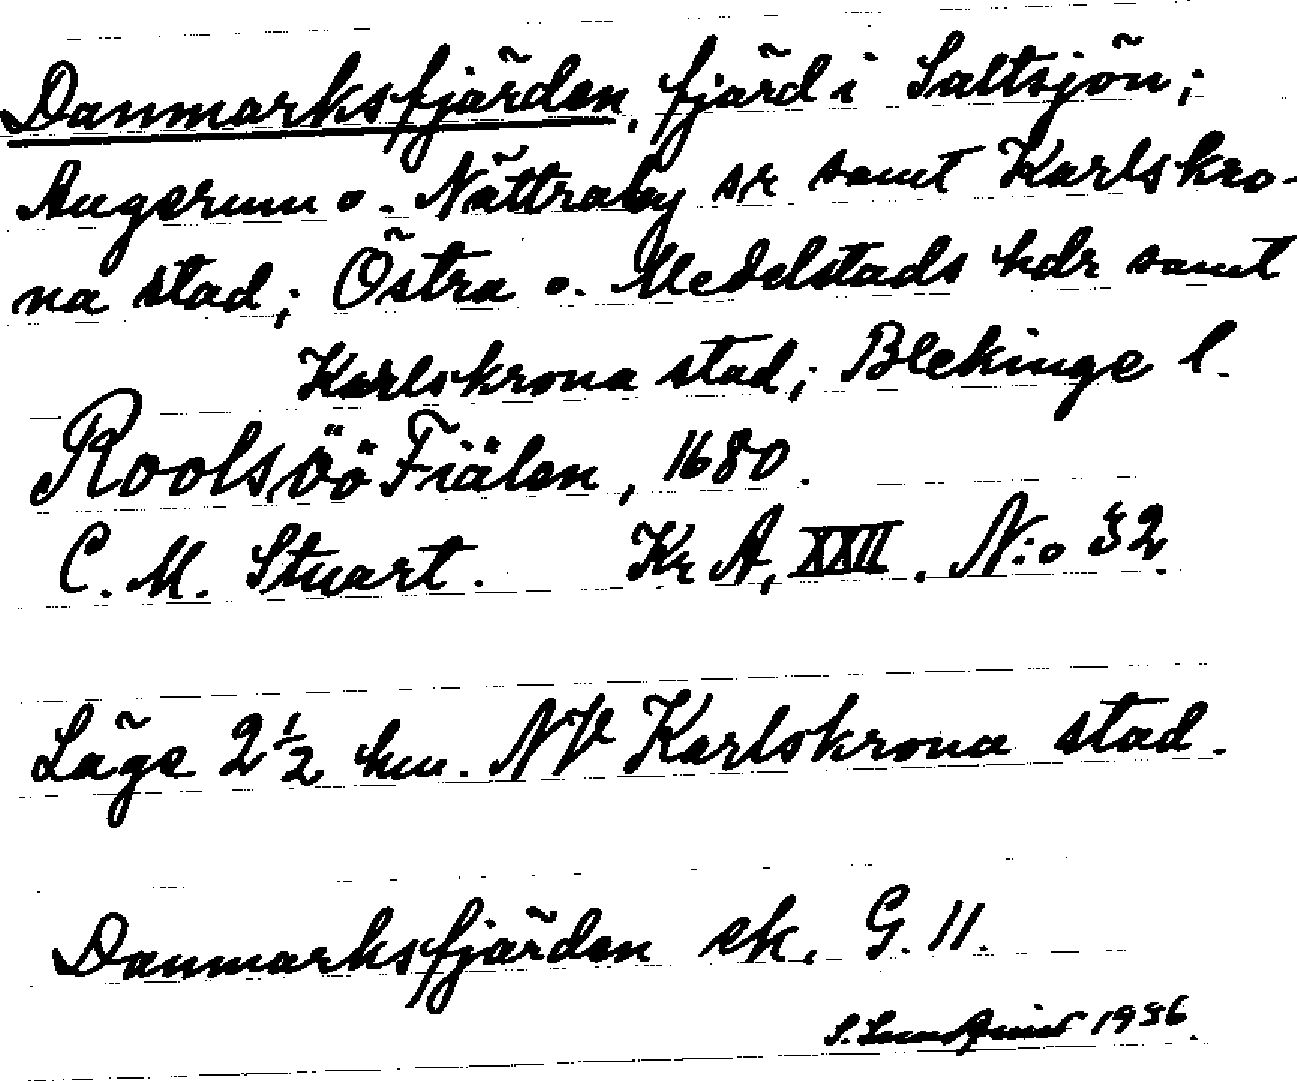 Danmarksfjärden, fjärd i Saltsjön;
Augerum o. Nättraby sr samt Karlskro-
na stad; Östra o. Medelstads hdr samt
Karlskrona stad; Blekinge l.
Roolsöö Fiälen, 1680.
C. M. Stuart. Kr A, XXII. N:o 32.
Läge 2½ km. NV Karlskrona stad.
Danmarksfjärden ek. G. 11.
S. 1936.